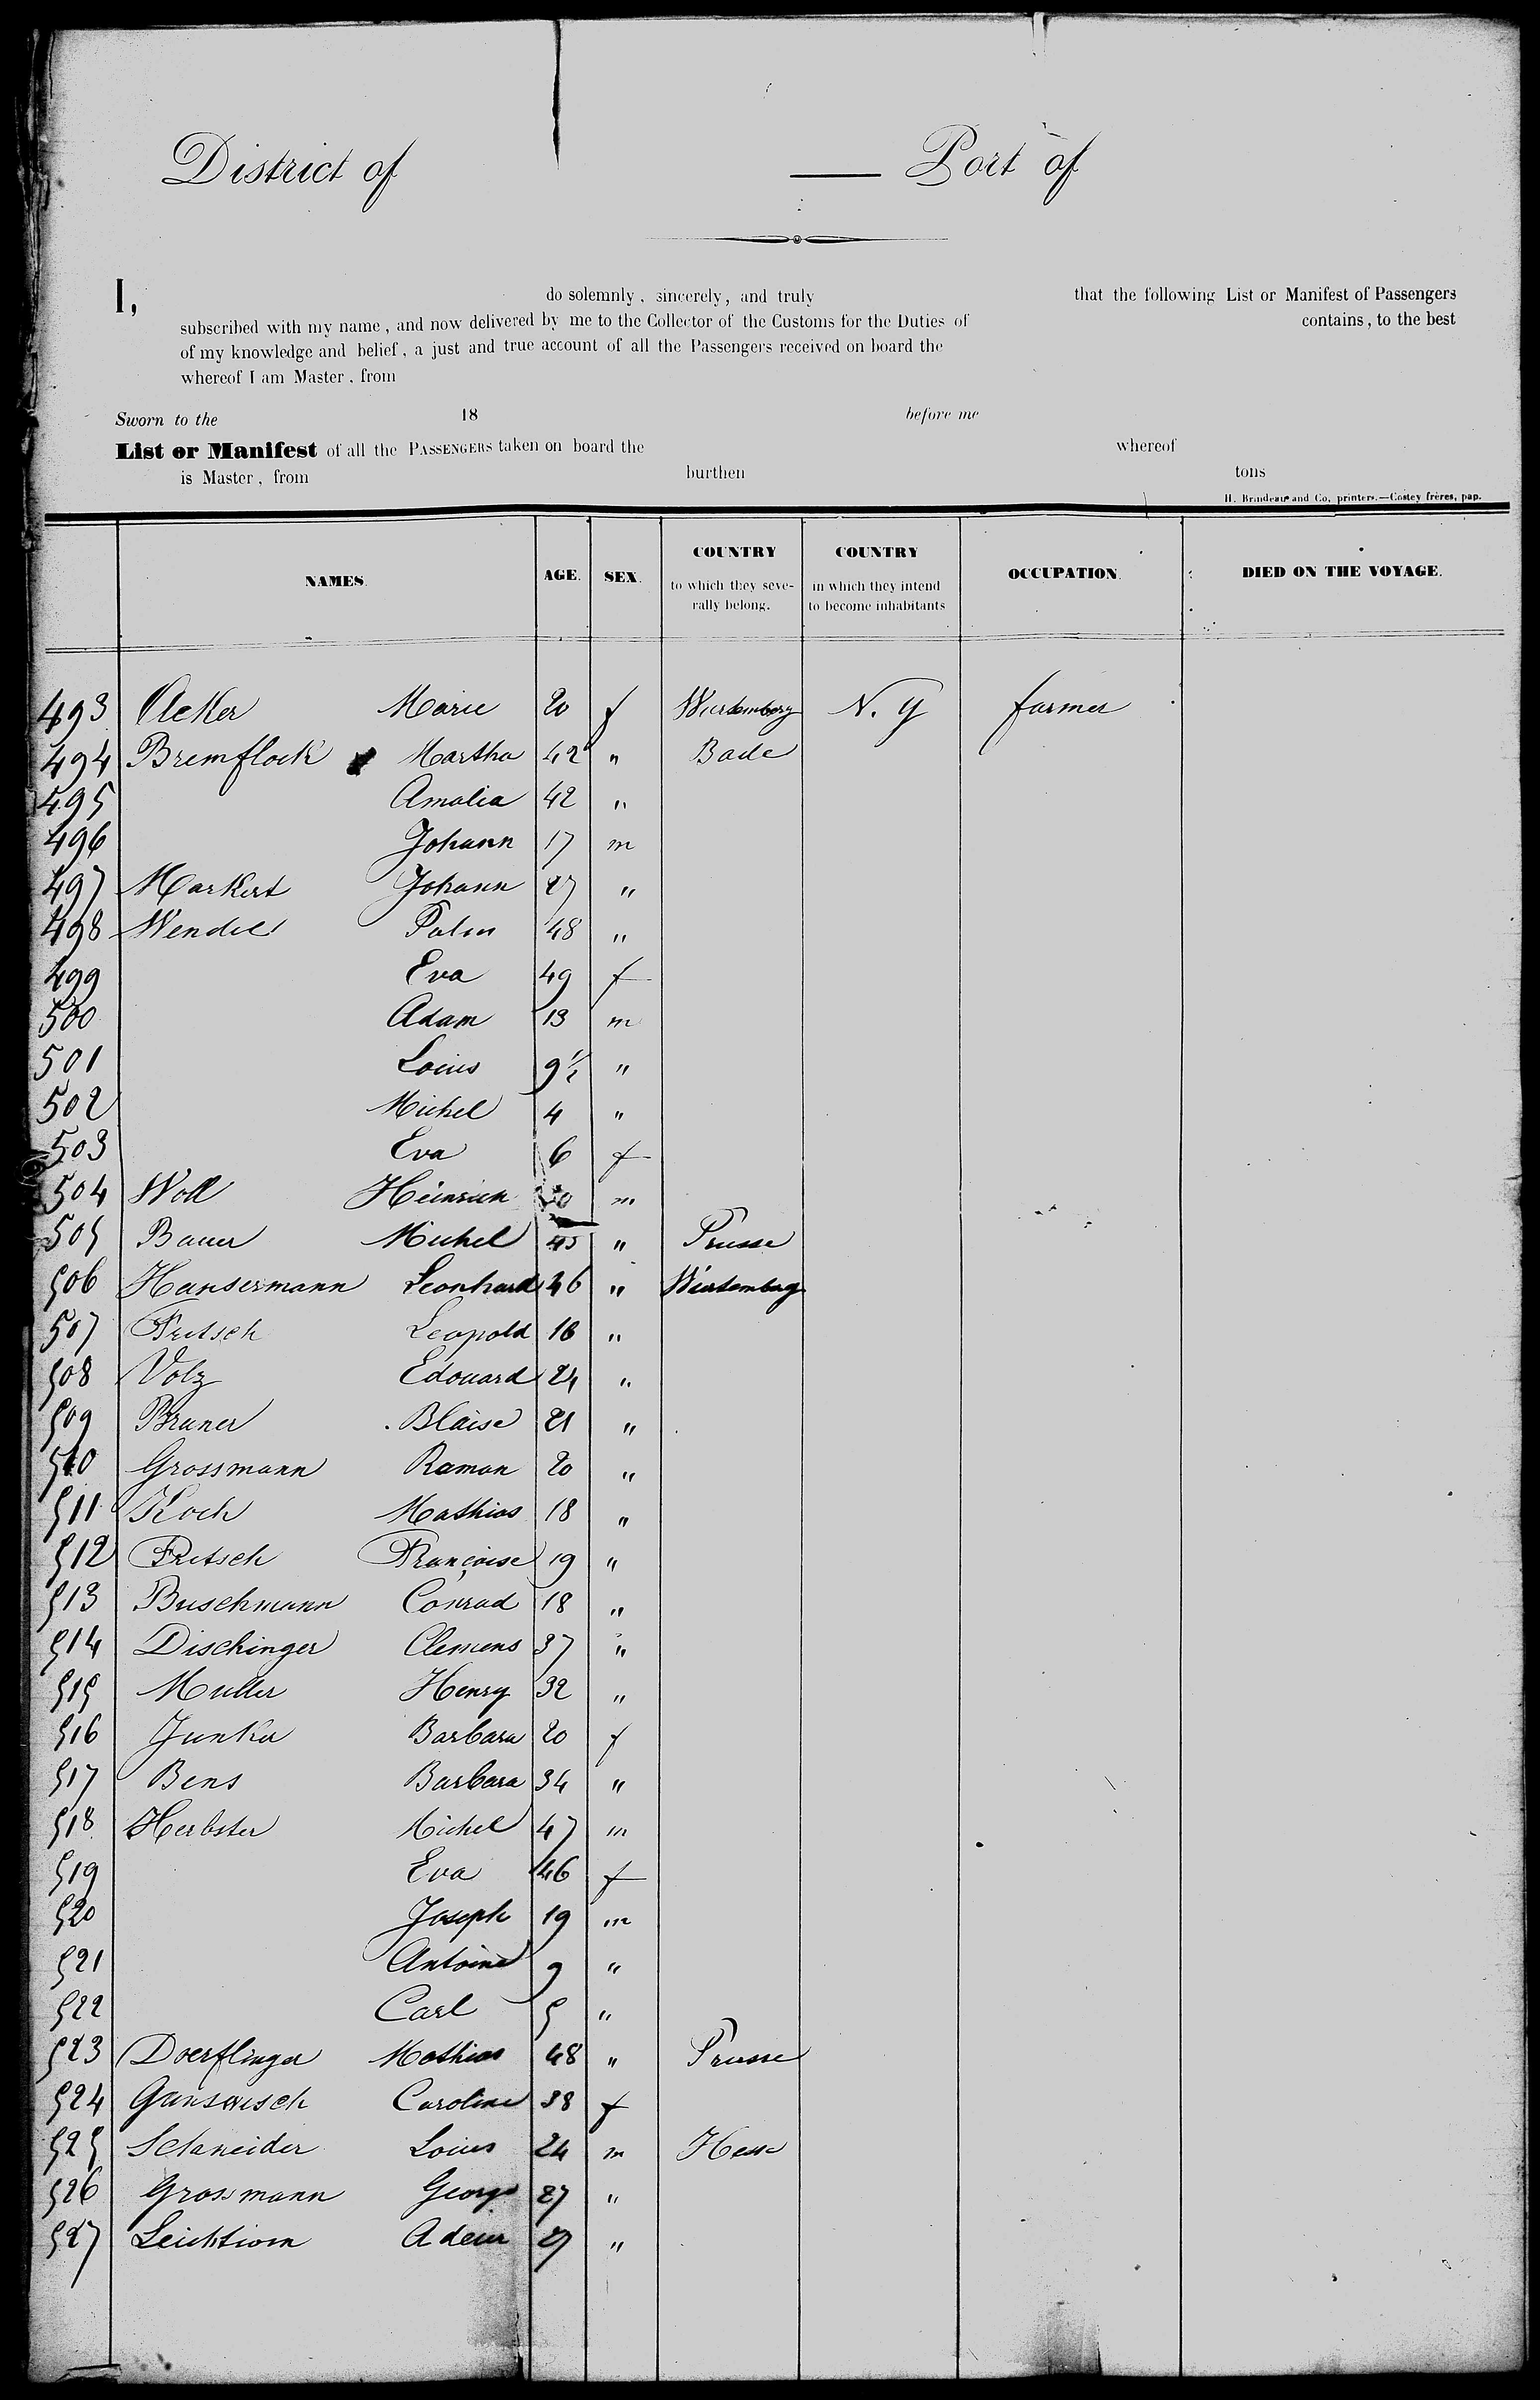 District of — Port of
I, do solemnly, sincerely, and truly that the following List or Manifest of Passengers
subscribed with my name, and now delivered by me to the Collector of the Customs for the Duties of contains, to the best
of my knowledge and belief, a just and true account of all the Passengers received on board the
whereof I am Master, from
Sworn to the 18 before me
List or Manifest of all the PASSENGERS taken on board the whereof
is Master, from burthen tons
H. Brindeau and Co, printers.—Costey frères, pap.
NAMES. AGE. SEX. COUNTRY to which they severally belong. COUNTRY in which they intend to become inhabitants OCCUPATION. DIED ON THE VOYAGE.
493 Acker Marie 20 f Wurtemberg N. Y farmer
494 Bremflock Martha 42 " Bade
495 Amalia 42 "
496 Johann 17 m
497 Markert Johann 27 "
498 Wendel 48 "
499 Eva 49 f
500 Adam 13 m
501 Louis 9½ "
502 Michel 4 "
503 Eva 6 f
504 Woll Heinrich m
505 Bauer Michel 45 " Prusse
506 Hansermann Leonhard 46 " Wurtemberg
507 Fritsch Leopold 18 "
508 Volz Edouard 24 "
509 Bruner Blaise 21 "
510 Grossmann Roman 20 "
511 Koch Mathias 18 "
512 Fritsch Françoise 19 "
513 Buschmann Conrad 18 "
514 Dischinger Clemens 37 "
515 Muller Henry 32 "
516 Junker Barbara 20 f
517 Bens Barbara 34 "
518 Herbster Michel 47 m
519 Eva 46 f
520 Joseph 19 m
521 Antoine 9 "
522 Carl 5 "
523 Doerflinger Mathias 48 " Prusse
524 Caroline 38 f
525 Schneider Louis 24 m Hesse
526 Grossmann George 27 "
527 "